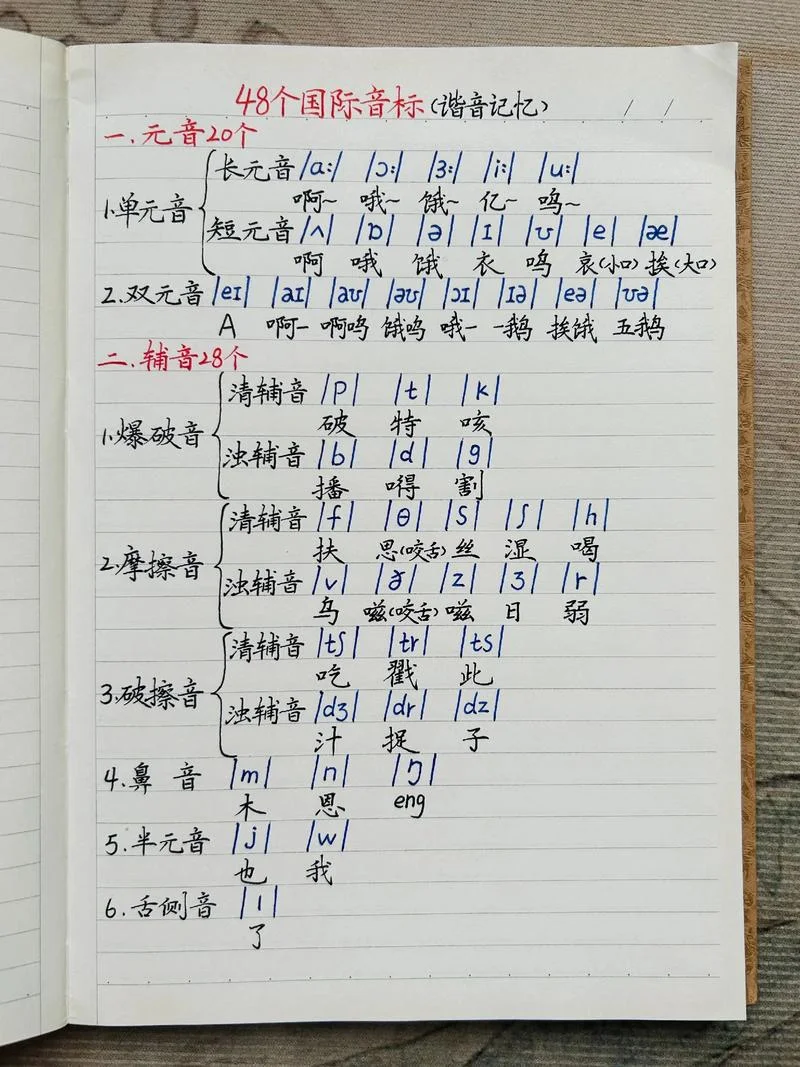 48个国际音标(谐音记忆) / /
一.元音20个
1.单元音
长元音 |ɑː| |ɔː| |ɜː| |iː| |uː|
啊~ 哦~ 饿~ 亿~ 呜~
短元音 |ʌ| |ɒ| |ə| |ɪ| |ʊ| |e| |æ|
啊 哦 饿 衣 呜 哀(小口) 挨(大口)
2.双元音 |eɪ| |aɪ| |aʊ| |əʊ| |ɔɪ| |ɪə| |eə| |ʊə|
A 啊一 啊呜 饿呜 哦一 一鹅 挨饿 五鹅
二.辅音28个
1.爆破音
清辅音 |p| |t| |k|
破 特 咳
浊辅音 |b| |d| |g|
播 嘚 割
2.摩擦音
清辅音 |f| |θ| |s| |ʃ| |h|
扶 思(咬舌) 丝 湿 喝
浊辅音 |v| |ð| |z| |ʒ| |r|
乌 嗞(咬舌) 嗞 日 弱
3.破擦音
清辅音 |tʃ| |tr| |ts|
吃 戳 此
浊辅音 |dʒ| |dr| |dz|
汁 捉 子
4.鼻音 |m| |n| |ŋ|
木 恩 eng
5.半元音 |j| |w|
也 我
6.舌侧音 |l|
了